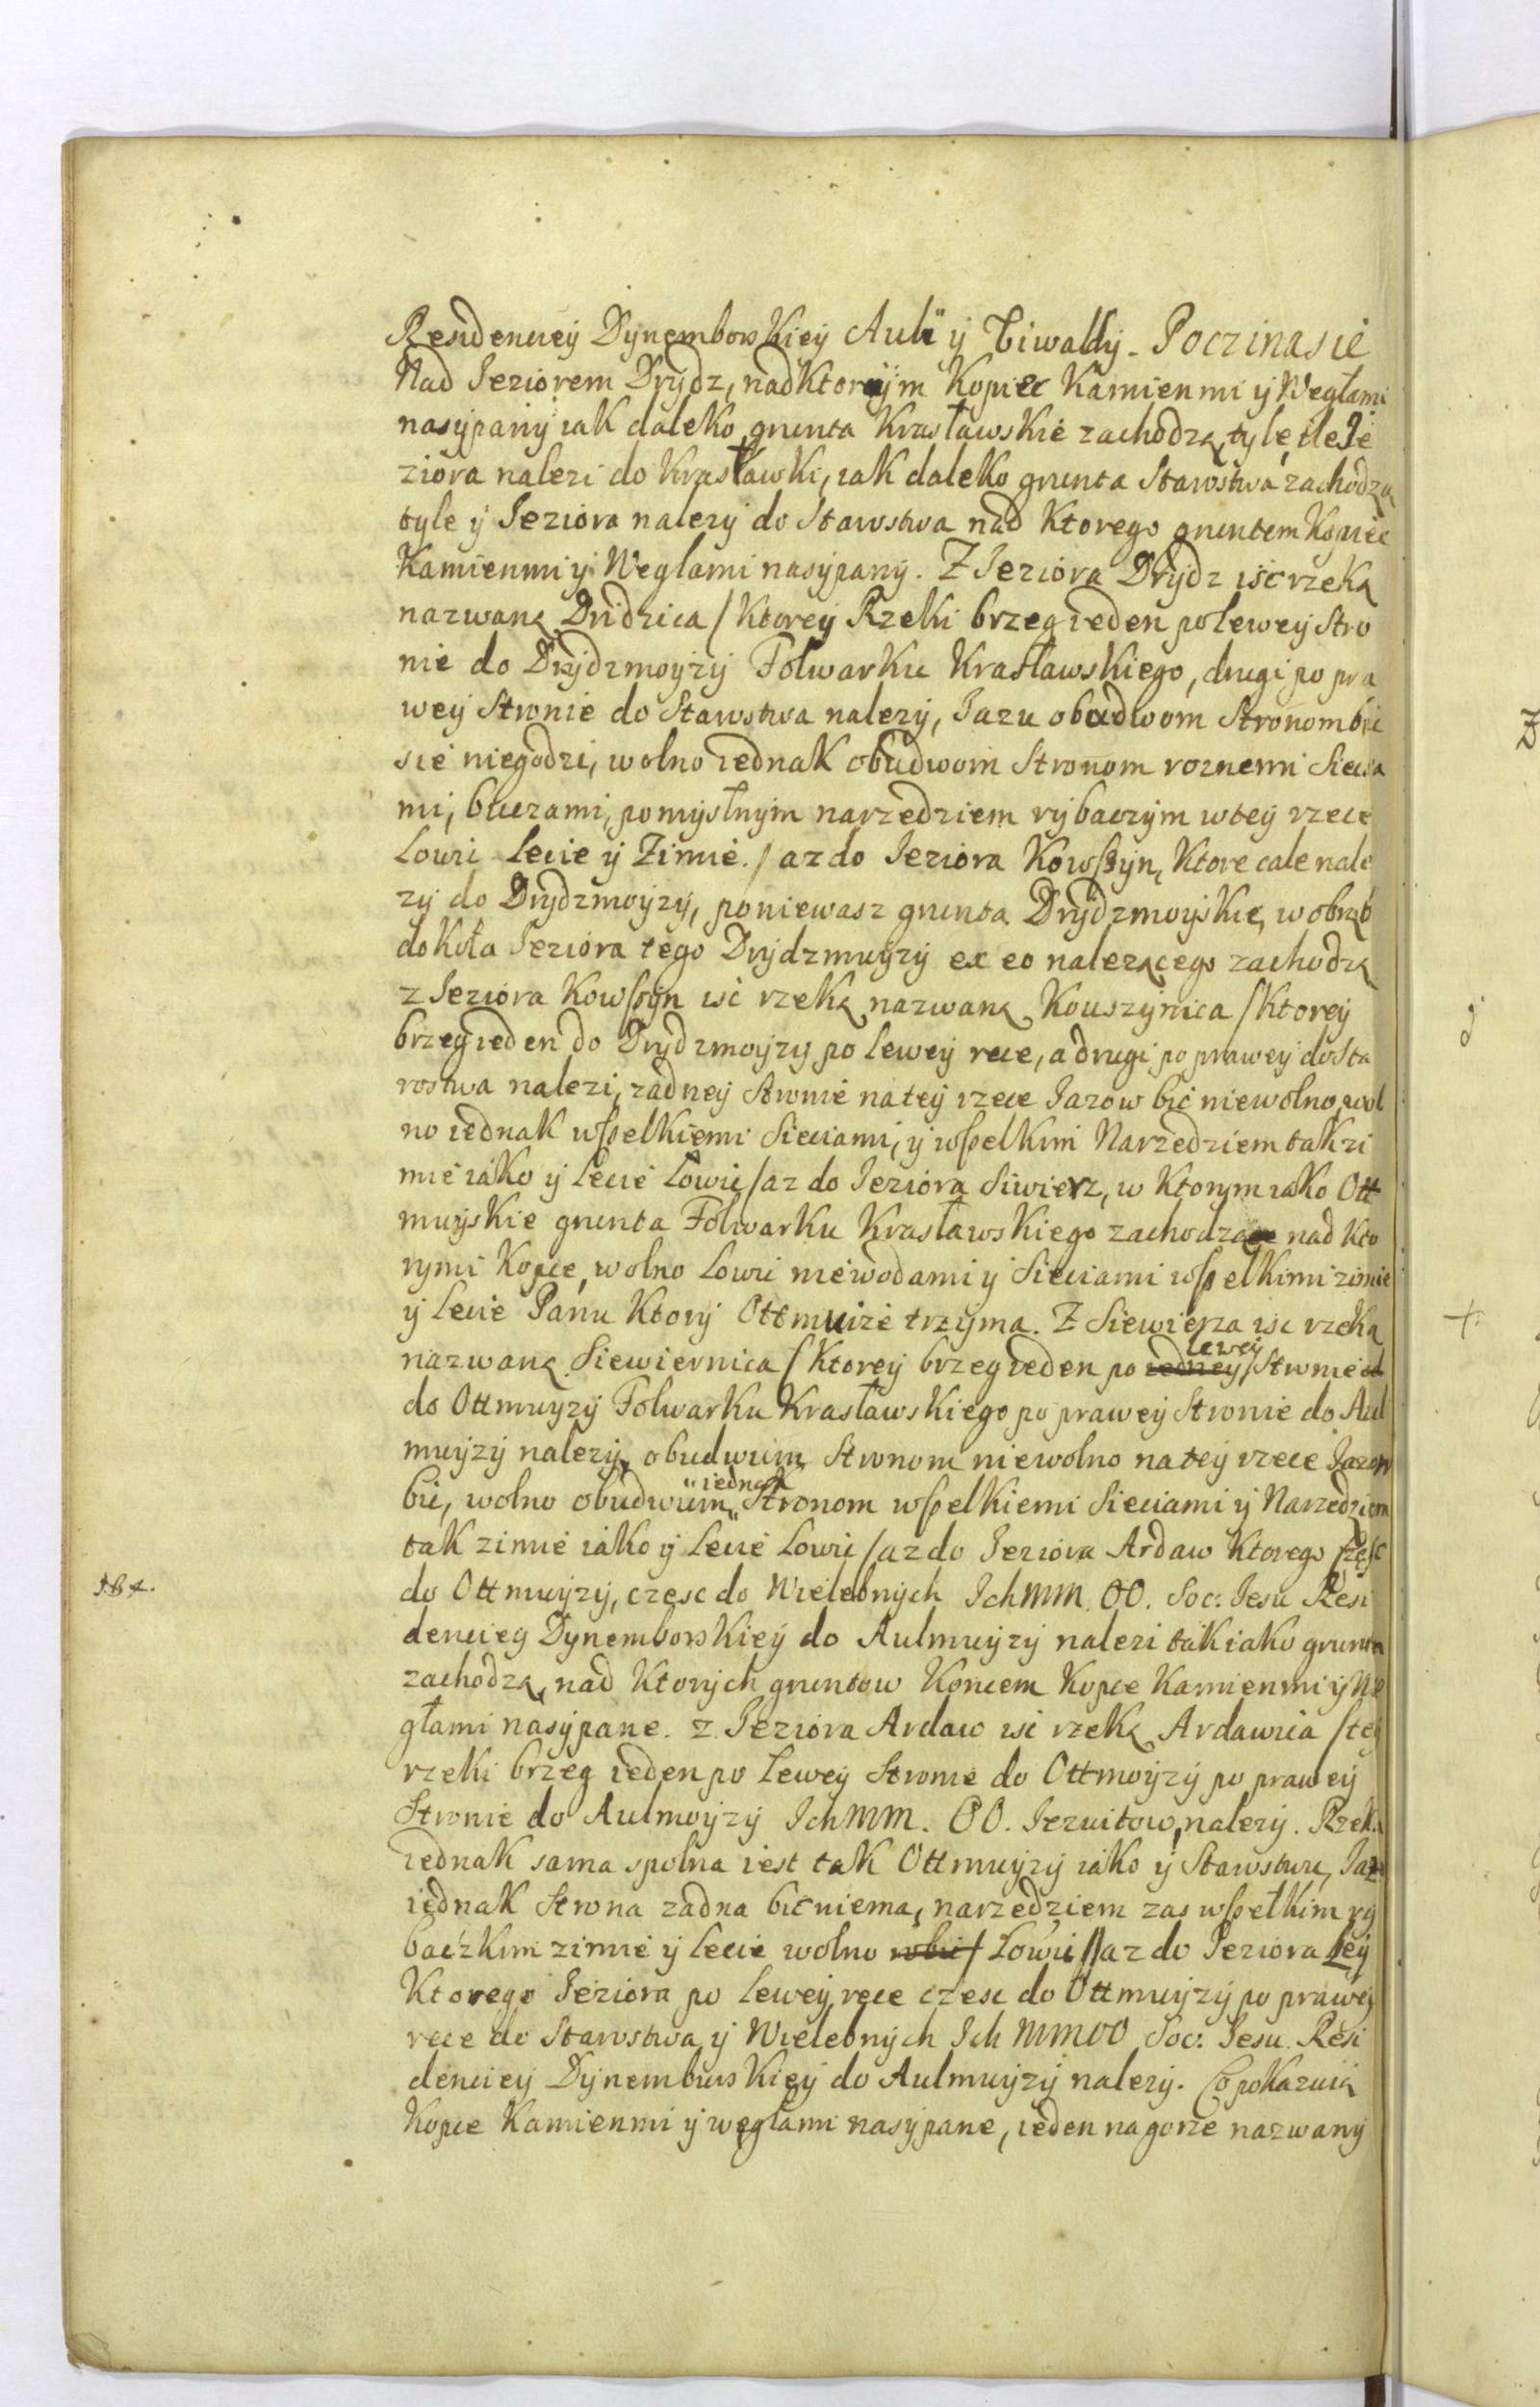 Residenciey Dynemborskiey Auli y Tiwaldy. Poczina sie
Nad Jeziorem Drydz, nad ktorym Kopiec Kamienmi y Węglami
nasypany iak daleko grunta Krasławskie zachodzą, tyle tle Je
ziora nalezi do Krasławki, iak daleko grunta Starostwa zachodzą
tyle y Jeziora nalezy do Starostwa nad ktorego gruntem Kopiec
Kamienmi y Węglami nasypany. Z Jeziora Drydz isc rzeką
nazwaną Dridzica / ktorey Rzeki brzeg ieden po lewey Stro
nie do Drydzmoyzy Folwarku Krasławskiego, drugi po pra
wey Stronie do Starostwa nalezy, Jazu obudwom Stronom bic
sie niegodzi, wolno iednak obudwom Stronom roznemi Siecia
mi, buczami, pomysłnym narzedziem rybaczym w tey rzece
Lowic Lecie y Zimie. / az do Jeziora Kowszyn, ktore cale nale
zy do Drydzmoyzy, poniewasz grunta Drydzmoyskie w obrąb
dokoła Jeziora tego Drydzmuyzy ex eo nalezącego zachodzą
z Jeziora Kowszyn isc rzeką nazwaną Kouszynica / ktorey
brzeg ieden do Drydzmoyzy po lewey rece, a drugi po prawey do Sta
rostwa nalezi, zadney Stronie na tey rzece Jazow bic niewolno, wol
no iednak wszelkiemi Sieciami, y wszelkim Narzedziem tak zi
mie iako y Lecie Lowic / az do Jeziora Siwierz, w ktorym iako Ott
muyskie grunta Folwarku Krasławskiego zachodzą nad kto
rymi Kopce, wolno Lowic niewodami y Sieciami wszelkimi zimie
y Lecie Panu ktory Ottmuize trzyma. Z Siewierza isc rzeką
nazwaną Siewiernica / ktorey brzeg ieden po iedney lewey Stronie
do Ottmuyzy Folwarku Krasławskiego po prawey Stronie do Aul
muyzy nalezy, obudwum Stronom niewolno na tey rzece Jazow
bic, wolno obudwum iednak Stronom wszelkiemi Sieciami y Narzedziem
tak zimie iako y Lecie Lowic / az do Jeziora Ardaw ktorego częsc
184. do Ottmuyzy, czesc do Wielebnych Ich MM. OO. Soc: Jesu Resi
denciey Dynemborskiey do Aulmuyzy nalezi tak iako grunta
zachodzą, nad ktorych gruntow Koncem Kopce Kamienmi y We
głami nasypane. z Jeziora Ardaw isc rzeką Ardawica / tey
rzeki brzeg ieden po Lewey Stronie do Ottmoyzy po prawey
Stronie do Aulmoyzy Ich MM. OO. Jezuitow, nalezy. Rzeka
iednak sama spolna iest tak Ottmuyzy iako y Starostwu, Jazu
iednak Strona zadna bic niema, narzedziem zas wszelkim ry
baczkim zimie y Lecie wolno Lowic // az do Jeziora Ley
ktorego Jeziora po Lewey rece czesc do Ottmuyzy po prawey
rece do Starostwa y Wielebnych Ich MM OO Soc: Jesu Resi
denciey Dynemborskiey do Aulmuyzy nalezy. Co pokazuią
Kopce Kamienmi y węglami nasypane, ieden na gorze nazwany